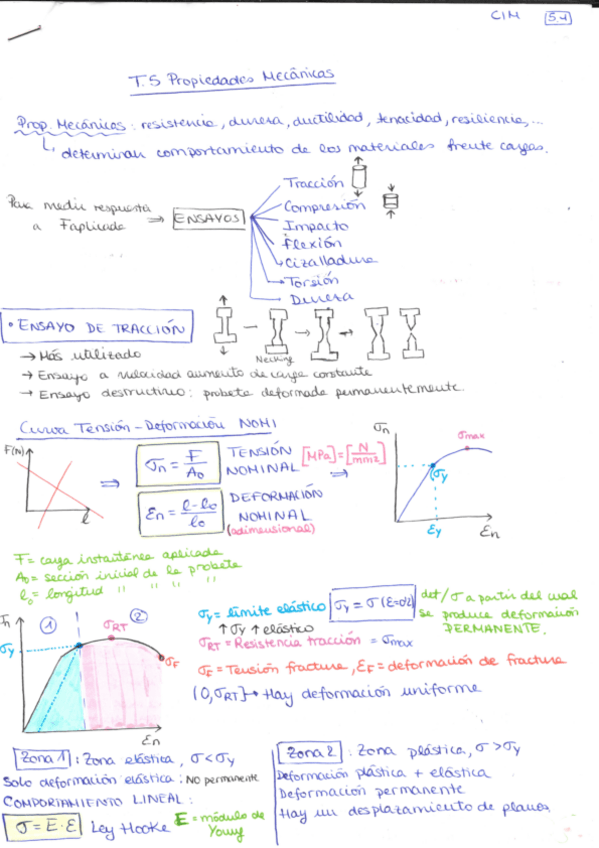 CIM 5.1
T.5 Propiedades Mecánicas
Prop. Mecánicas: resistencia, dureza, ductilidad, tenacidad, resiliencia,...
determinan comportamiento de los materiales frente cargas.
Para medir respuesta
a Faplicada ⇒ ENSAYOS
Tracción
Compresión
Impacto
Flexión
Cizalladura
Torsión
Dureza
• ENSAYO DE TRACCIÓN
Necking
→ Más utilizado
→ Ensayo a velocidad aumento de carga constante
→ Ensayo destructivo: probeta deformada permanentemente.
Curva Tensión - Deformación NOMI
F(N)
l
⇒ σn = F/A₀ TENSIÓN NOMINAL [MPa] = [N/mm2] ⇒
εn = l-l₀/l₀ DEFORMACIÓN NOMINAL
(adimensional)
σn
σmax
σy
εy
εn
F = carga instantánea aplicada
A₀ = sección inicial de la probeta
l₀ = longitud " " " "
σn
σy
① ②
σRT
σF
εn
σy = límite elástico σy = σ(ε=0'2) def/σ a partir del cual
se produce deformación
PERMANENTE.
↑σy ↑ elástico
σRT = Resistencia tracción = σmax
σF = Tensión fractura, εF = deformación de fractura
(0,σRT] → Hay deformación uniforme
Zona 1: Zona elástica, σ<σy
Solo deformación elástica: NO permanente
COMPORTAMIENTO LINEAL:
σ = E·ε Ley Hooke E = módulo de
Young
Zona 2: Zona plástica, σ>σy
Deformación plástica + elástica
Deformación permanente
Hay un desplazamiento de planos